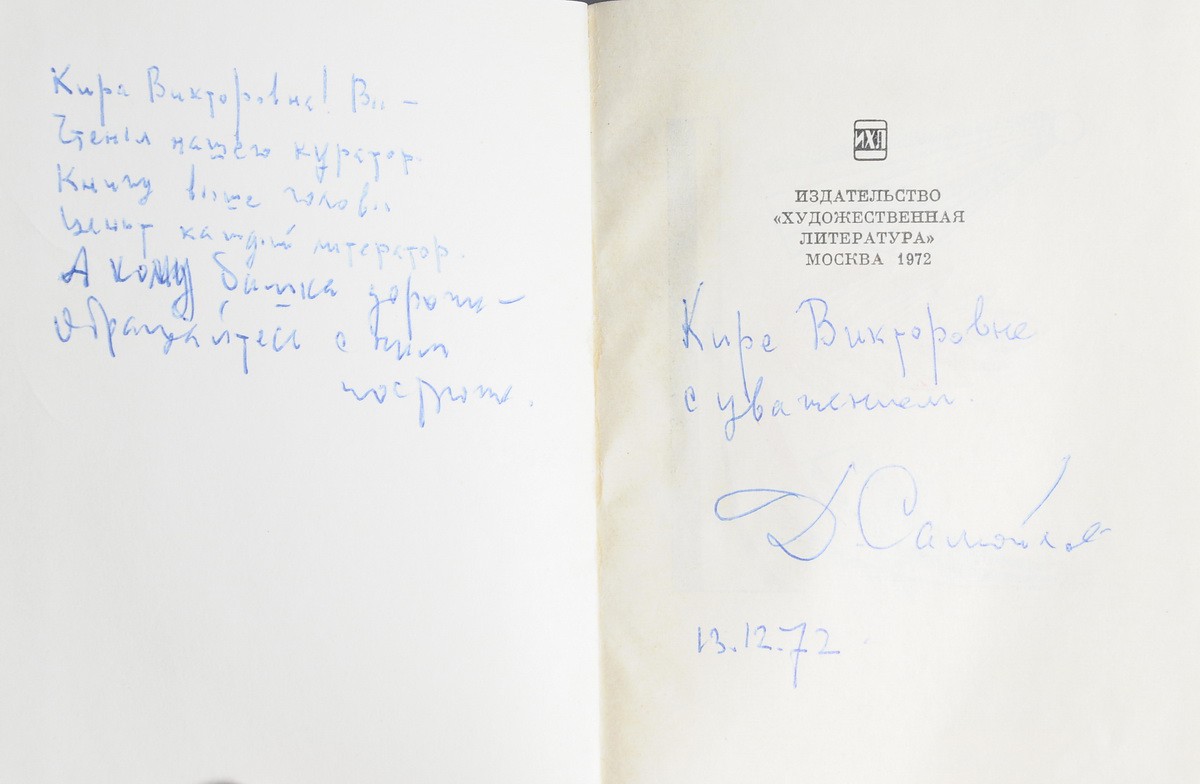 Кира Викторовна! Вы —
Чтенья нашего куратор.
Книгу выше головы
Ценит каждый литератор.
А кому башка дороже —
Обращайтесь с ним
построже.
ИХЛ
ИЗДАТЕЛЬСТВО
«ХУДОЖЕСТВЕННАЯ
ЛИТЕРАТУРА»
МОСКВА 1972
Кире Викторовне
с уважением.
Д. Самойлов
13.12.72